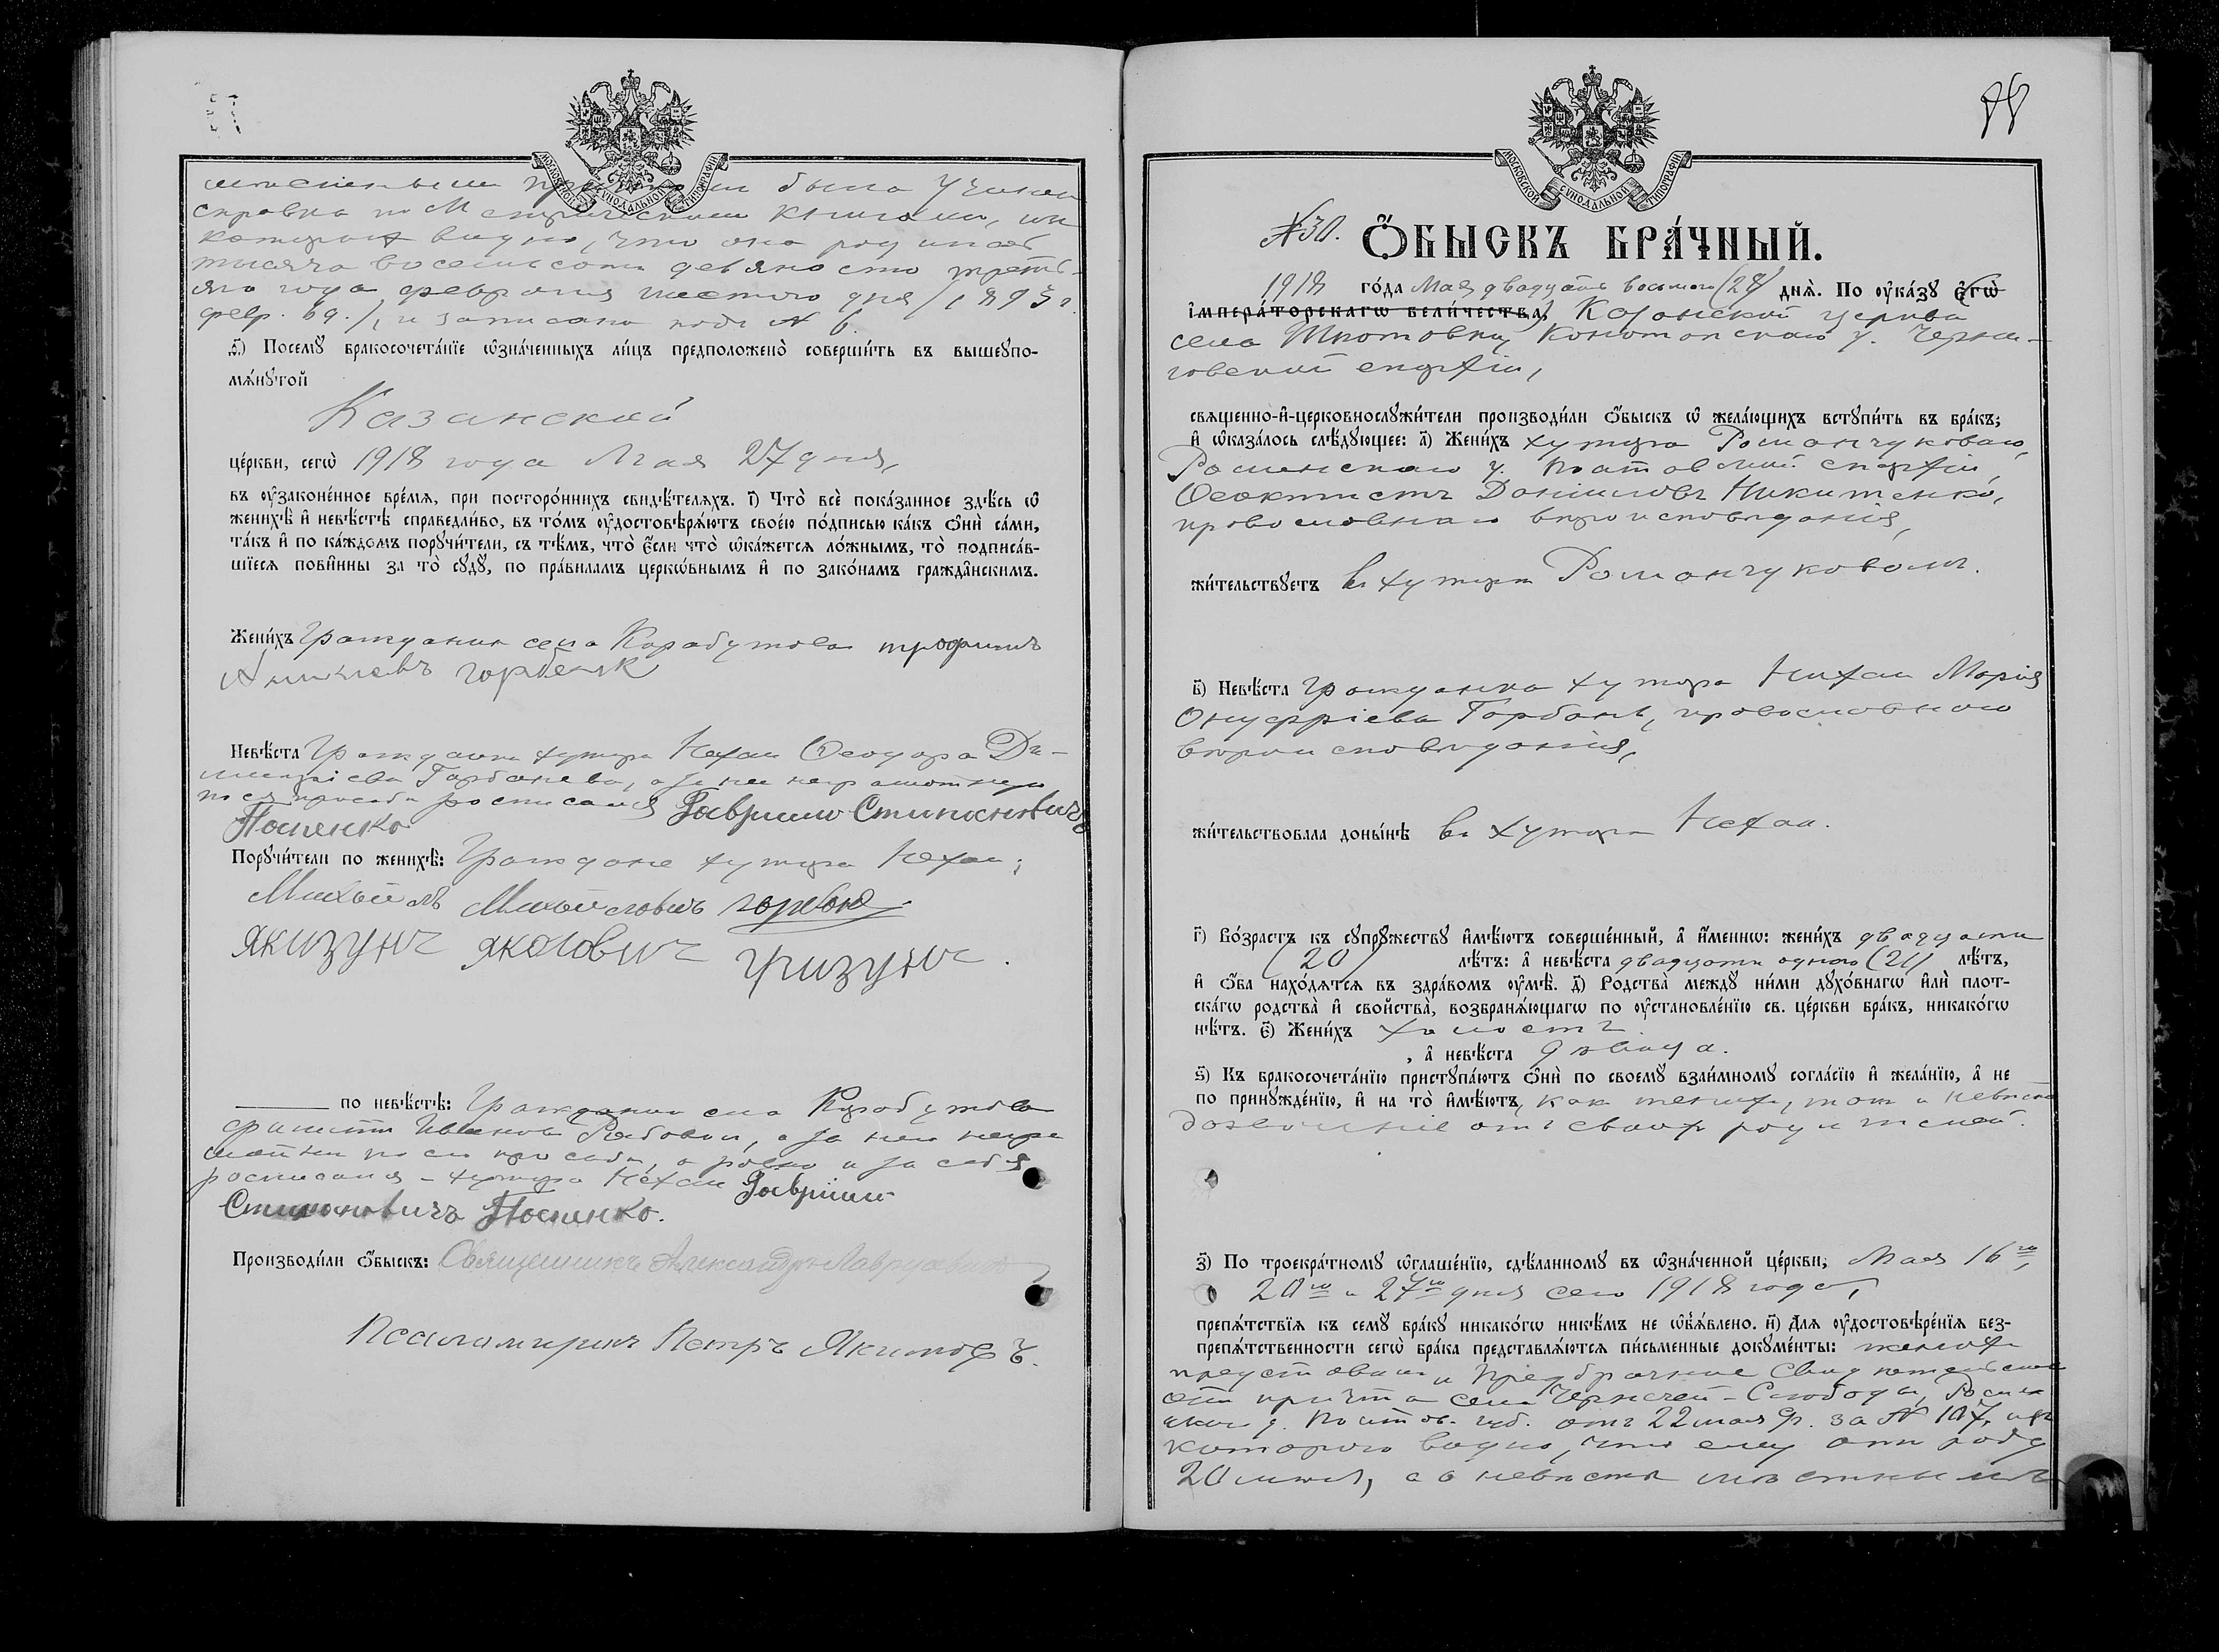 МОСКОВСКОЙ СѴНОДАЛЬНОЙ ТИПОГРАФІИ
была учинена
справка по Метрическим книгам, из
которых видно, что она родилась
тысяча восемьсот девяносто треть-
яго года февраля шестого дня /1893 г.
февр. 6д./, и записана подъ № 6.
Посемꙋ бракосочета́нїе ѡ҆зна́ченныхъ ли́цъ предположено̀ соверши́ть въ вышеꙋпо-
мѧ́нꙋтой
Казанской
це́ркви, сегѡ̀ 1918 года Мая 27 дня,
въ ᲂу҆законе́нное вре́мѧ, при посторо́ннихъ свидѣ́телѧхъ. і҃) Что̀ всѐ пока́занное здѣ́сь ѡ҆
женихѣ̀ и҆ невѣ́стѣ справедли́во, въ то́мъ ᲂу҆достовѣрѧ́ютъ свое́ю по́дписью ка́къ ѻ҆нѝ са́ми,
та́къ и҆ по ка́ждомъ порꙋчи́тели, съ тѣ́мъ, что̀ є҆́сли что̀ ѡ҆ка́жетсѧ ло́жнымъ, то̀ подписа́в-
шїесѧ пови́нны за то̀ сꙋдꙋ̀, по пра́виламъ церко́внымъ и҆ по зако́намъ гражда́нскимъ.
Жени́хъ Гражданин села Карабутова трофимъ
горбенк
Невѣ́ста Гражданка хутора Нехаи Феодора Ди-
митріева Горбанева, а за нее неграмотную
по ея просьбе росписался Гавриило Стипановичъ
Посненко
Порꙋчи́тели по женихѣ̀: Граждане хутора Нехаи;
Михайлъ Михайловичъ горбонь
якизунъ яковович гризунъ.
по невѣ́стѣ: Гражданин села Карабутова
Иванов Рябовол, а за него негра
мотнаго по его просьбе, а равно и за себя
росписался - хутора Нехаи Гавриил
Стипановичъ Посненко.
Производи́ли ѻ҆́быскъ: Священникъ Александръ
Псаломщикъ Петръ Якимовъ.
МОСКОВСКОЙ СѴНОДАЛЬНОЙ ТИПОГРАФІИ
№30. Ѻ҆́БЫСКЪ БРА́ЧНЫЙ.
1918 го́да Мая двадцать восьмого (28) днѧ̀. По ᲂу҆ка́зꙋ є҆гѡ̀
і҆мпера́торскагѡ вели́чества, Казанской церкви
села Шпотовки, Конотопскаго у. Черни-
говской епархіи,
свѧщенно-и҆-церковнослꙋжи́тели производи́ли ѻ҆́быскъ ѡ҆ жела́ющихъ встꙋпи́ть въ бра́къ;
и҆ ѡ҆каза́лось слѣ́дꙋющее: а҃) Жени́хъ хутора Романчуковаго,
Роменскаго у. Полтавской епархіи,
Феоктистъ Даниловъ Никитенко,
православнаго вероисповеданія,
жи́тельствꙋетъ в хуторе Романчуковом.
в҃) Невѣ́ста Гражданка хутора Нехаи Марія
Онуфріева Горбань, православного
вероисповеданія,
жи́тельствовала доны́нѣ в хуторе Нехаи.
г҃) Во́зрастъ къ сꙋпрꙋ́жествꙋ и҆мѣ́ютъ соверше́нный, а҆ и҆́меннѡ: жени́хъ двадцати
(20) лѣ́тъ: а҆ невѣ́ста двадцати одного (21) лѣ́тъ,
и҆ ѻ҆́ба нахо́дѧтсѧ въ здра́вомъ ᲂу҆мѣ̀. д҃) Родства̀ междꙋ̀ ни́ми дꙋхо́внагѡ и҆лѝ плот-
ска́гѡ родства̀ и҆ сво́йства, возбранѧ́ющагѡ по ᲂу҆становле́нїю св. це́ркви бра́къ, никако́гѡ
нѣ́тъ. є҃) Жени́хъ холостъ
, а҆ невѣ́ста девица.
ѕ҃) Къ бракосочета́нїю пристꙋпа́ютъ ѻ҆нѝ по своемꙋ̀ взаи́мномꙋ согла́сїю и҆ жела́нїю, а҆ не
по принꙋжде́нїю, и҆ на то̀ и҆мѣ́ютъ, как жених, так и невеста
дозволеніе отъ своих родителей.
з҃) По троекра́тномꙋ ѡ҆глаше́нїю, сдѣ́ланномꙋ въ ѡ҆зна́ченной це́ркви, Мая 16го,
20го и 27го дня сего 1918 года,
препѧ́тствїѧ къ семꙋ̀ бра́кꙋ никако́гѡ никѣ́мъ не ѡ҆б̾ѧ́влено. и҃) Длѧ ᲂу҆достовѣре́нїѧ без-
препѧ́тственности сегѡ̀ бра́ка представлѧ́ютсѧ пи́сьменные докꙋме́нты: жених
представил Предбрачное Свидетельство
от причта села Чернечей-Слободы, Ромен
скаго у. Полтав. губ. отъ 22 мая за № 107, из
которого видно, что ему от роду
20 летъ, а о невесте местнымъ